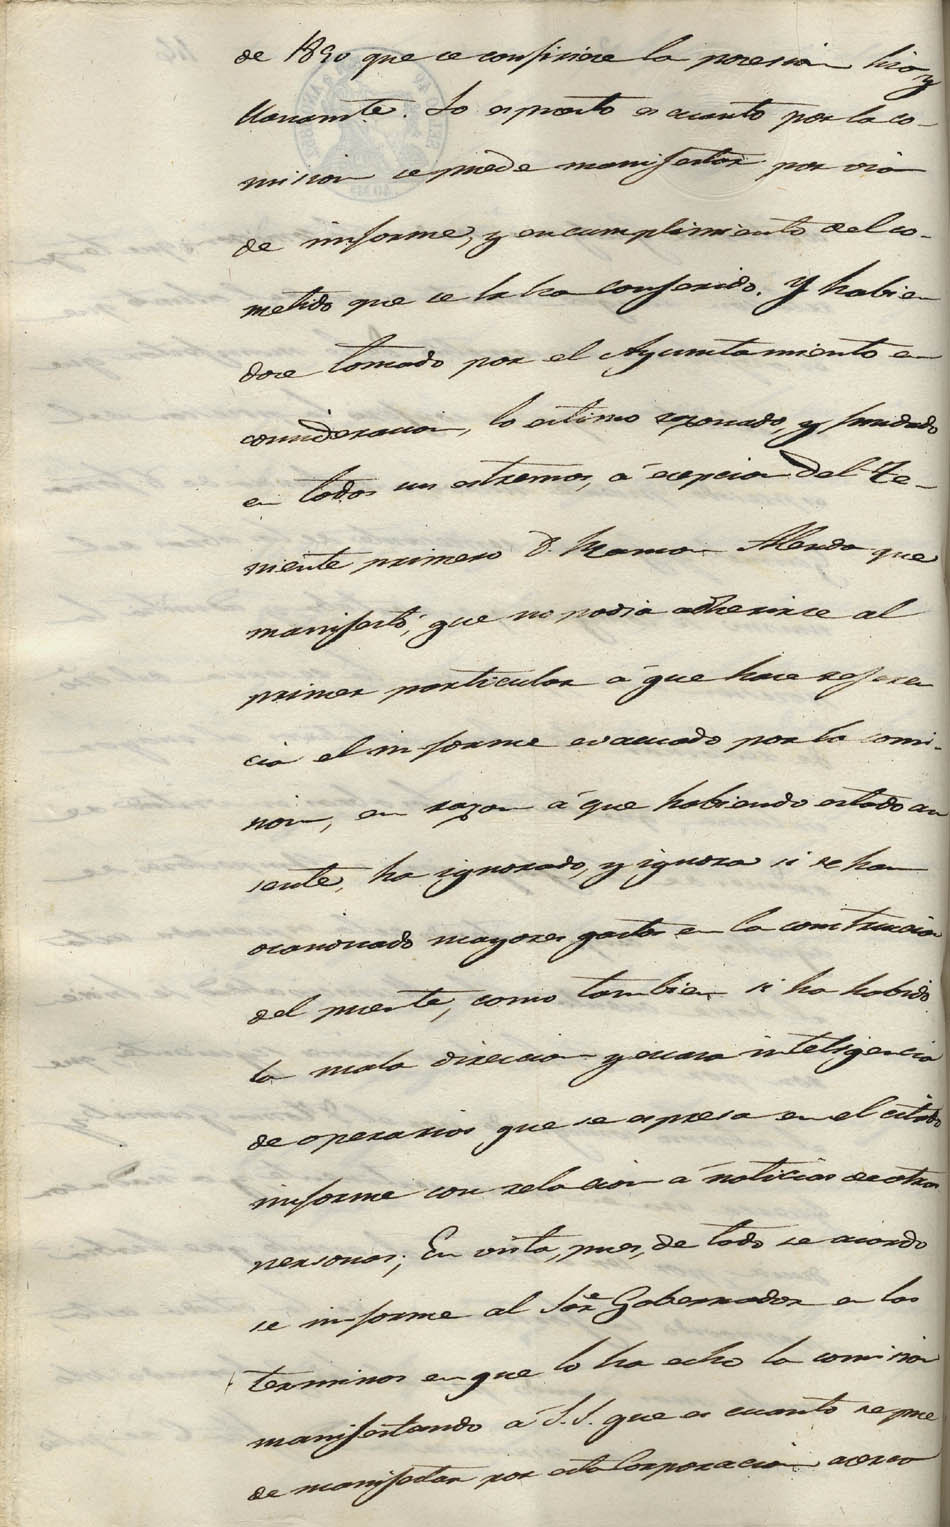 de 1850 que se confiriere la poresion liso y
llanamte. Lo espuesto es cuanto por la co-
mision se puede manifestar por via
de informe, y en cumplimiento del co-
metido que se le ha conferido. Y habien
dose tomado por el Ayuntamiento en
consideracion, lo estimo razonado, y fundado
en todos sus estremos, á escepcion del Te-
niente primero D. Ramon que
manifestó, que no podia adherirse al
primer particular á que hace referen
cia el informe evacuado por la comi-
sion, en razon á que habiendo estado au
sente, ha ignorado, y ignora si se han
ocasionado mayores gastos en la construccion
del puente, como tambien si ha habido
la mala direccion y escasa inteligencia
de operarios que se espresa en el citado
informe con relacion á noticias de otras
personas; En vista, pues, de todo se acordó
se informe al Sor. Gobernador en los
terminos en que lo ha echo la comision
manifestando á S.S. que es cuanto se pue
de manifestar por esta Corporacion acerca